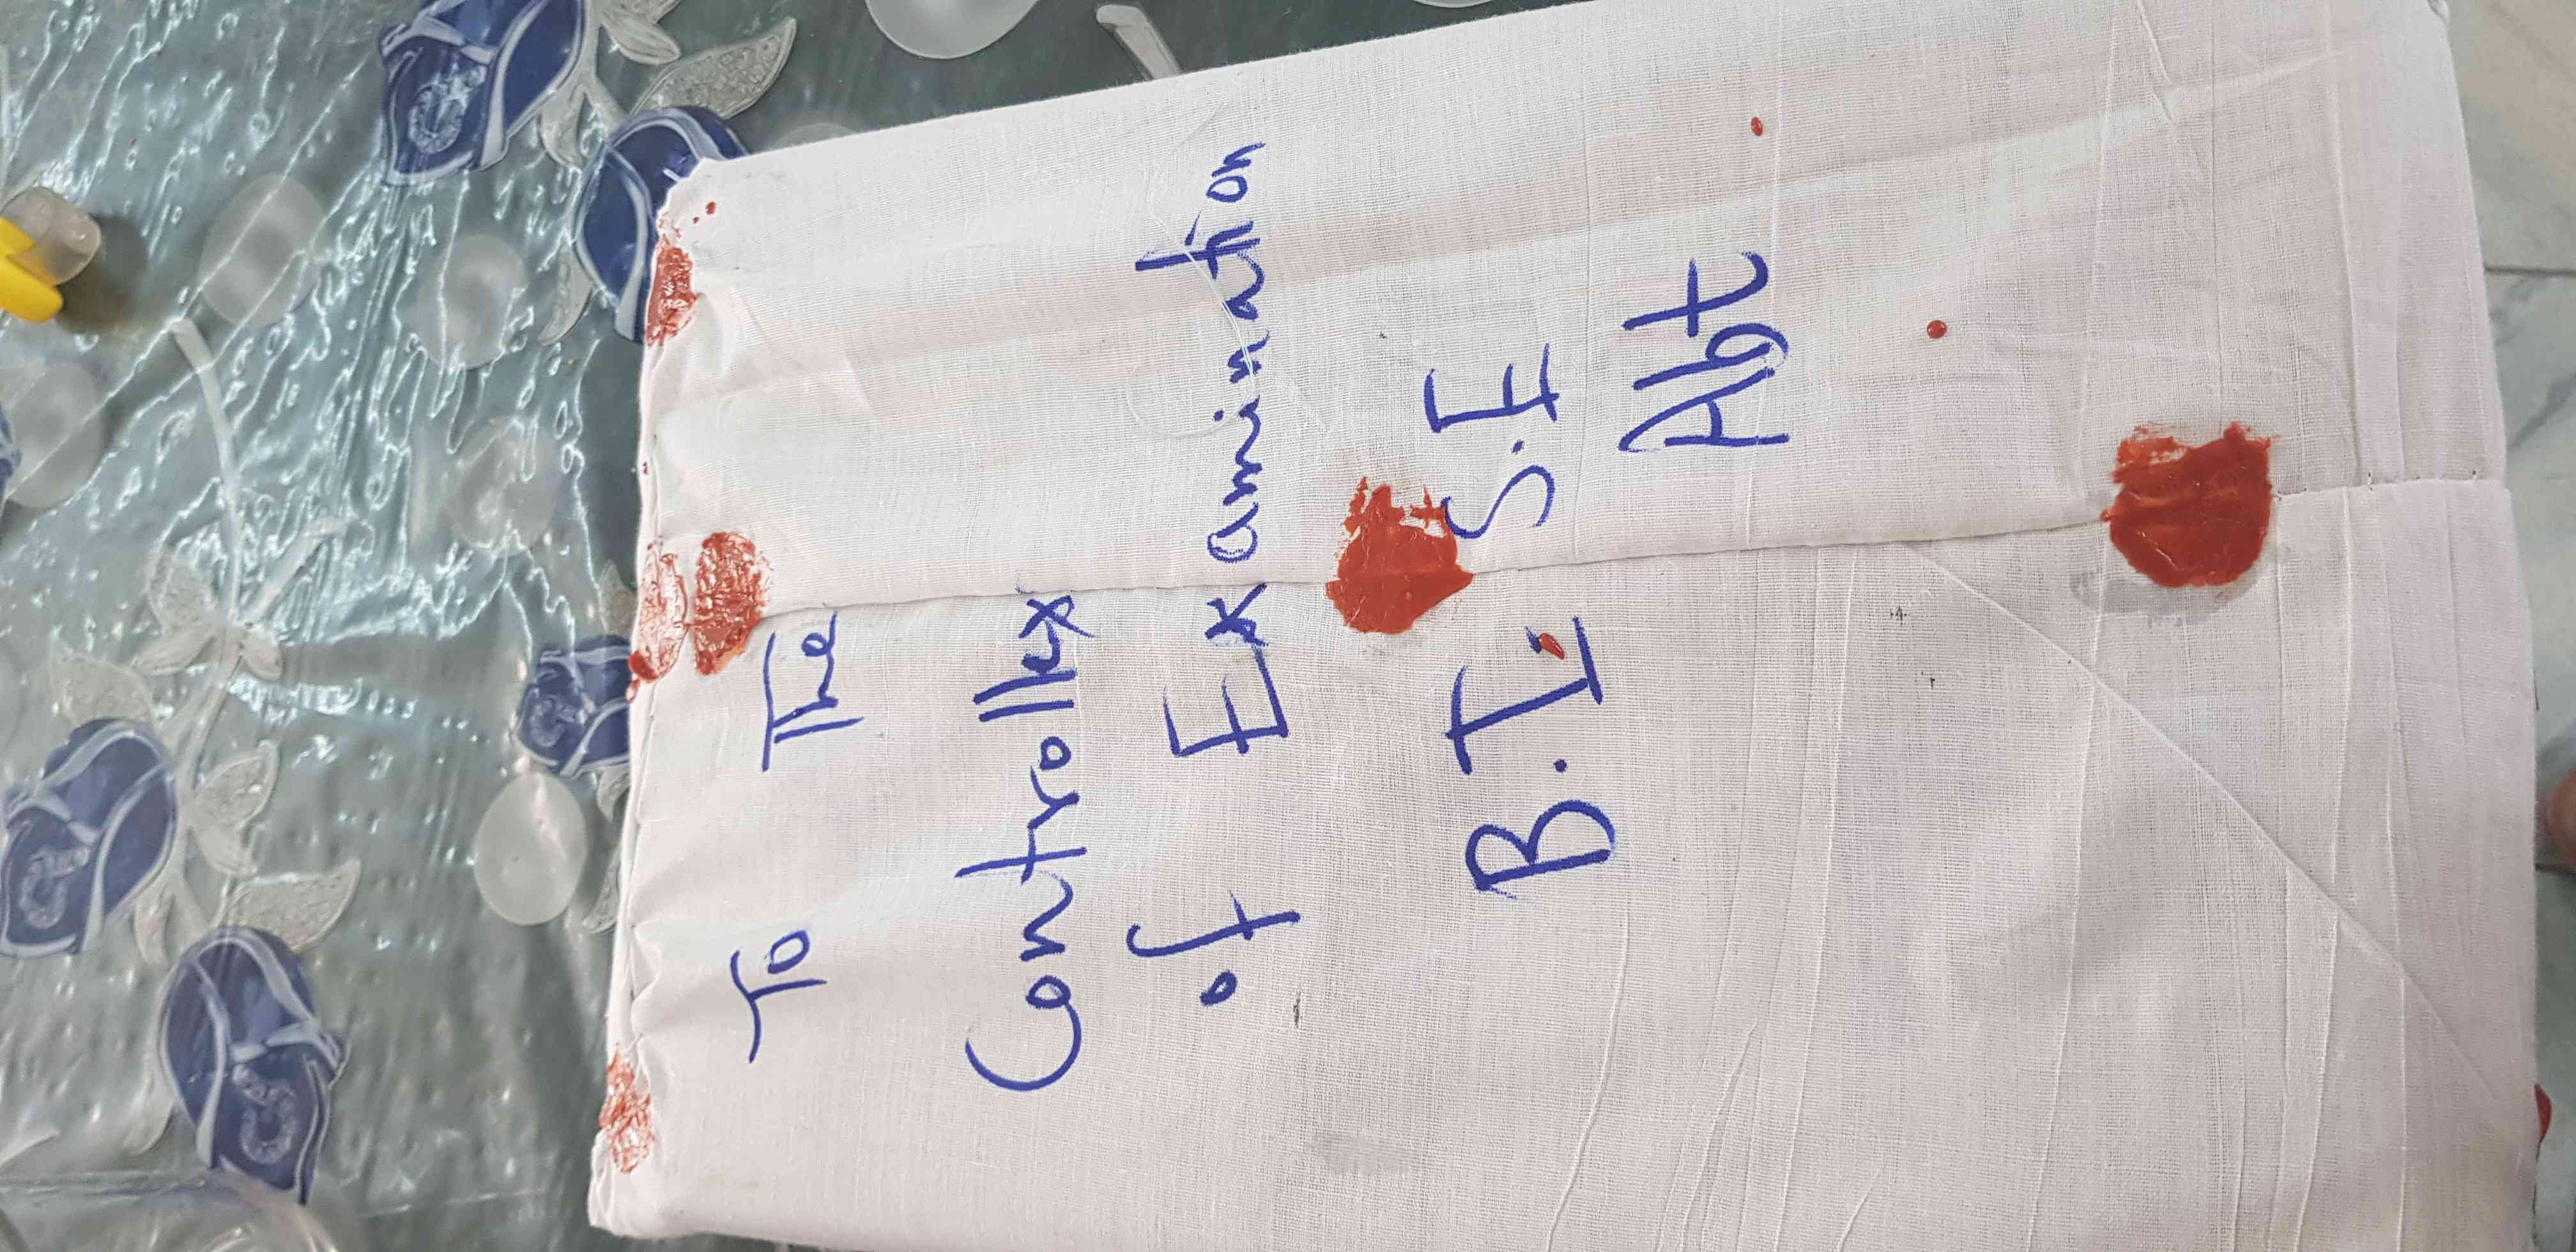 To The
Controller
of Examination
B.I. S.E
Abt